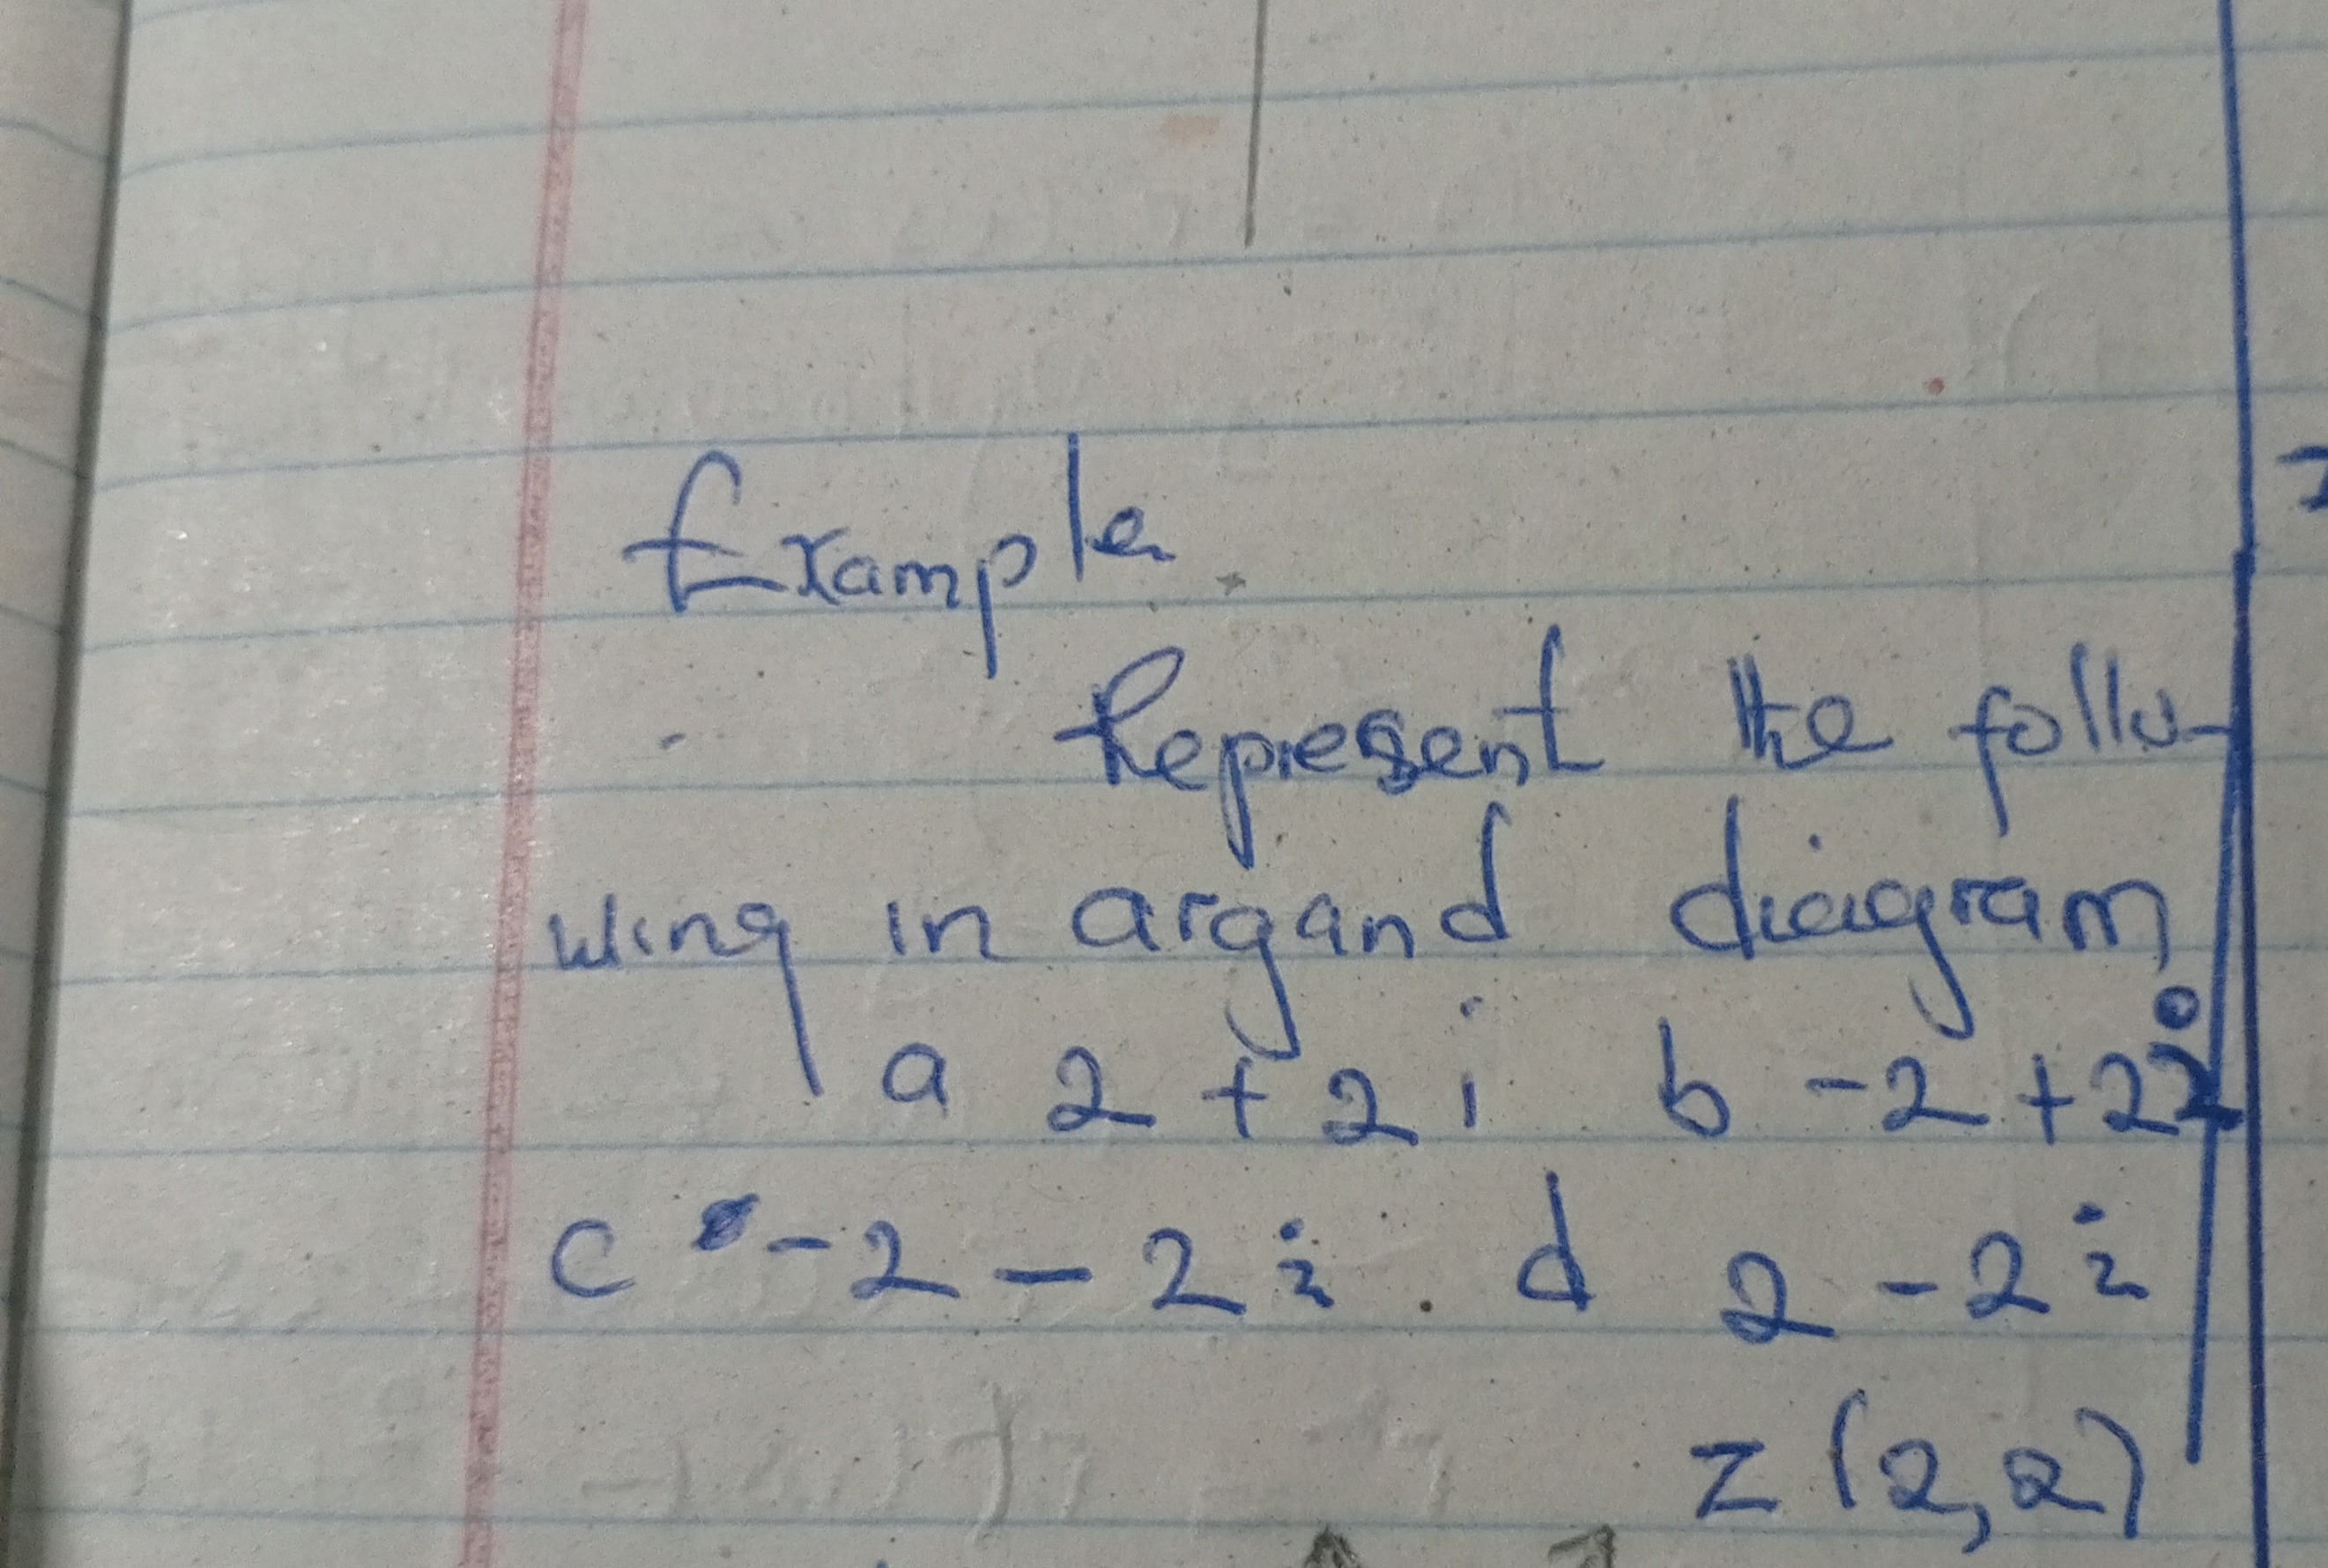 Example
Represent the follo-
wing in argand diagram
a 2 + 2 i b -2 +2i
c -2 - 2i . d 2 - 2i
z (2,2)